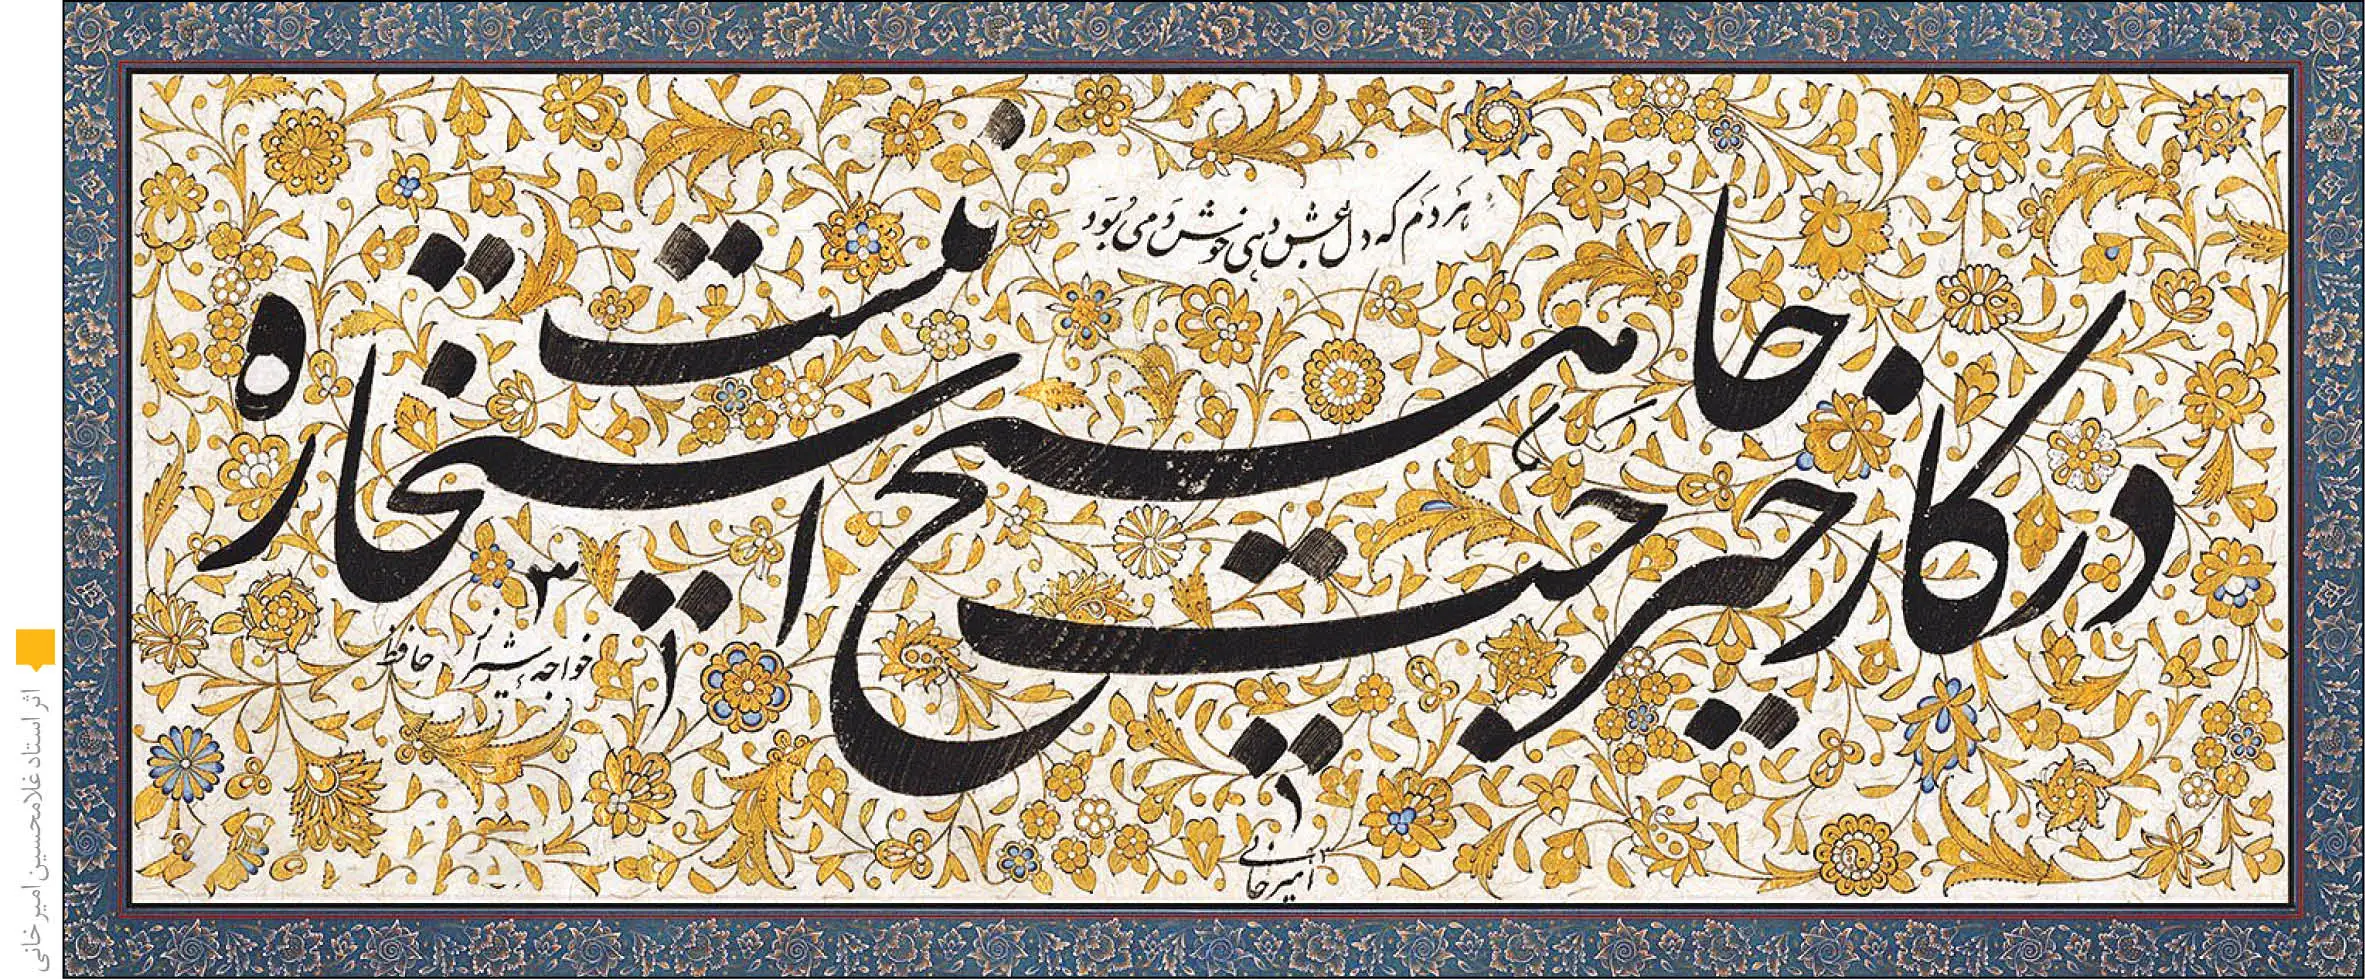 هر دم که دل بعشق دهی خوش دمی بود
در کار خیر حاجت هیچ استخاره نیست
خواجه شیراز حافظ
امیرخانی
اثر استاد غلامحسین امیرخانی